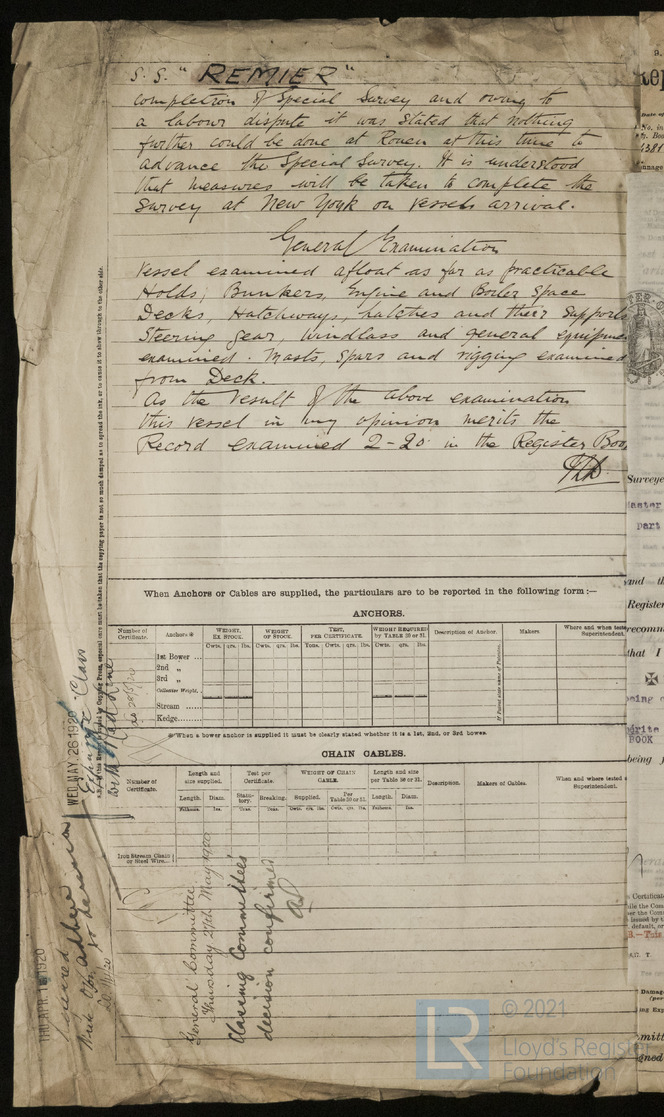 S.S. "REMIER"
completion of Special Survey and owing to
a labour dispute it was stated that nothing
further could be done at Rouen at this time to
advance the Special Survey. It is understood
that measures will be taken to complete the
Survey at New York on vessels arrival.
General Examination
Vessel examined afloat as far as practicable
Holds, Bunkers, Engine and Boiler Space
Decks, Hatchways, hatches and their supports
Steering gear, windlass and general equipme
examined. Masts, spars and rigging examined
from Deck.
As the result of the above examination
this vessel in my opinion merits the
Record examined 2-20 in the Register Boo
When Anchors or Cables are supplied, the particulars are to be reported in the following form:—
ANCHORS.
Number of Certificate.
Anchors *
WEIGHT, EX STOCK.
WEIGHT OF STOCK.
TEST, PER CERTIFICATE.
WEIGHT REQUIRED by TABLE 20 or 31.
Description of Anchor.
Makers.
Where and when teste
Superintendent.
Cwts. qrs. lbs.
Cwts. qrs. lbs.
Tons. Cwt. qrs. lbs.
Cwts. qrs. lbs.
1st Bower ...
2nd „
3rd „
Collective Weight.
Stream
Kedge
If Patent state name of Patentee.
* When a bower anchor is supplied it must be clearly stated whether it is a 1st, 2nd, or 3rd bower.
CHAIN CABLES.
Number of Certificate.
Length and size supplied.
Test per Certificate.
WEIGHT OF CHAIN CABLE.
Length and size per Table 20 or 31.
Description.
Makers of Cables.
When and where tested
Superintendent.
Length.
Diam.
Statutory.
Breaking.
Supplied.
Per Table 20 or 31.
Length.
Diam.
Fathoms.
Ins.
Tons.
Tons.
Cwts. qrs. lbs.
Cwts. qrs. lbs.
Fathoms.
Ins.
Iron Stream Chain
or Steel Wire...
General Committee
Thursday 27th May 1920
Classing Committee's
decision confirmed
WED MAY. 26 1920
Expunge Class
with Red Line
THU. APR. 1 1920
Surveye
Register
recomm
that I
BOOK
being
© 2021
Lloyd's Register
Foundation
LR